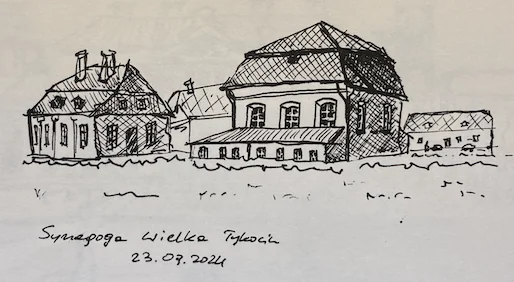 Synagoga Wielka Tykocin
23.09.2024